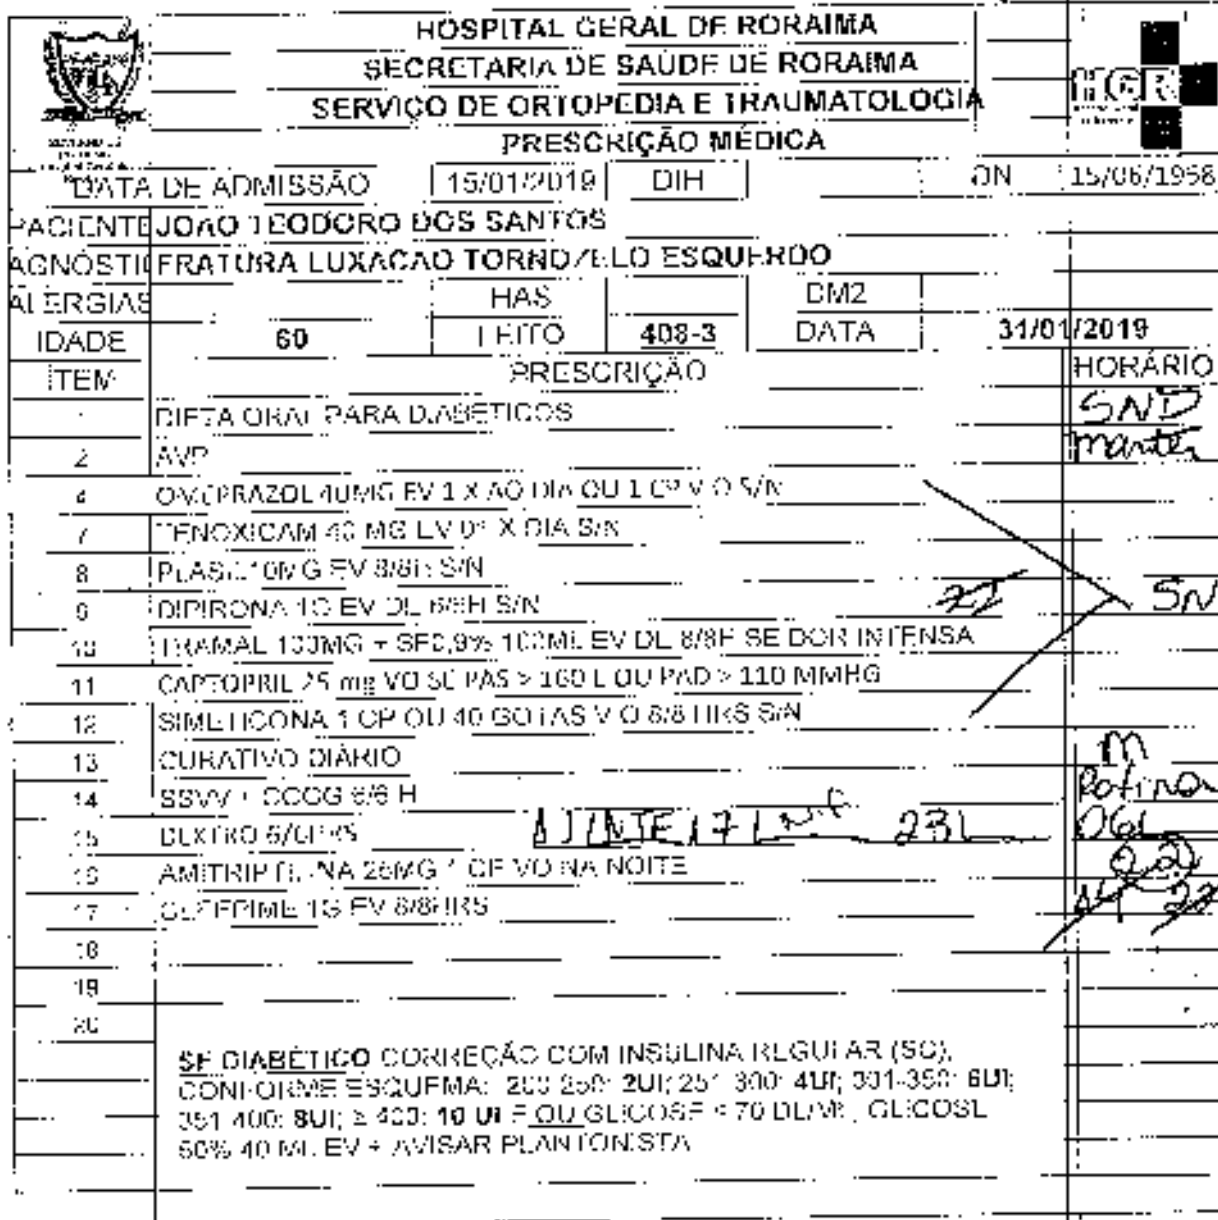 HOSPITAL GERAL DE RORAIMA
SECRETARIA DE SAÚDE DE RORAIMA
SERVIÇO DE ORTOPEDIA E TRAUMATOLOGIA
HGR
PRESCRIÇÃO MÉDICA
DATA DE ADMISSÃO 15/01/2019 DIH DN 15/06/1958
PACIENTE JOAO TEODORO DOS SANTOS
AGNÓSTI FRATURA LUXACAO TORNOZELO ESQUERDO
ALERGIAS HAS DM2
IDADE 60 LEITO 408-3 DATA 31/01/2019
ITEM PRESCRIÇÃO HORÁRIO
1 DIETA ORAL PARA DIABÉTICOS SND
2 AVP manter
4 OMEPRAZOL 40MG EV 1 X AO DIA OU 1 CP V O S/N
7 TENOXICAM 40 MG EV 01 X DIA S/N
8 PLASIL 10MG EV 8/8H S/N
9 DIPIRONA 1G EV DE 6/6H S/N 22 SN
10 TRAMAL 100MG + SF0,9% 100ML EV DE 8/8H SE DOR INTENSA
11 CAPTOPRIL 25 mg VO SE PAS > 160 E OU PAD > 110 MMHG
12 SIMETICONA 1 CP OU 40 GOTAS V O 8/8 HRS S/N
13 CURATIVO DIÁRIO M
14 SSVV + CCGG 6/6 H Rotina
15 DEXTRO 6/6HRS 17 23 06
16 AMITRIPTILINA 25MG 1 CP VO NA NOITE 22
17 CEFEPIME 1G EV 8/8HRS 14 22
18
19
20
SE DIABÉTICO CORREÇÃO COM INSULINA REGULAR (SC),
CONFORME ESQUEMA: 200-250: 2UI; 251-300: 4UI; 301-350: 6UI;
351-400: 8UI; ≥ 400: 10 UI E OU GLICOSE < 70 DL/ML, GLICOSE
50% 40 ML EV + AVISAR PLANTONISTA